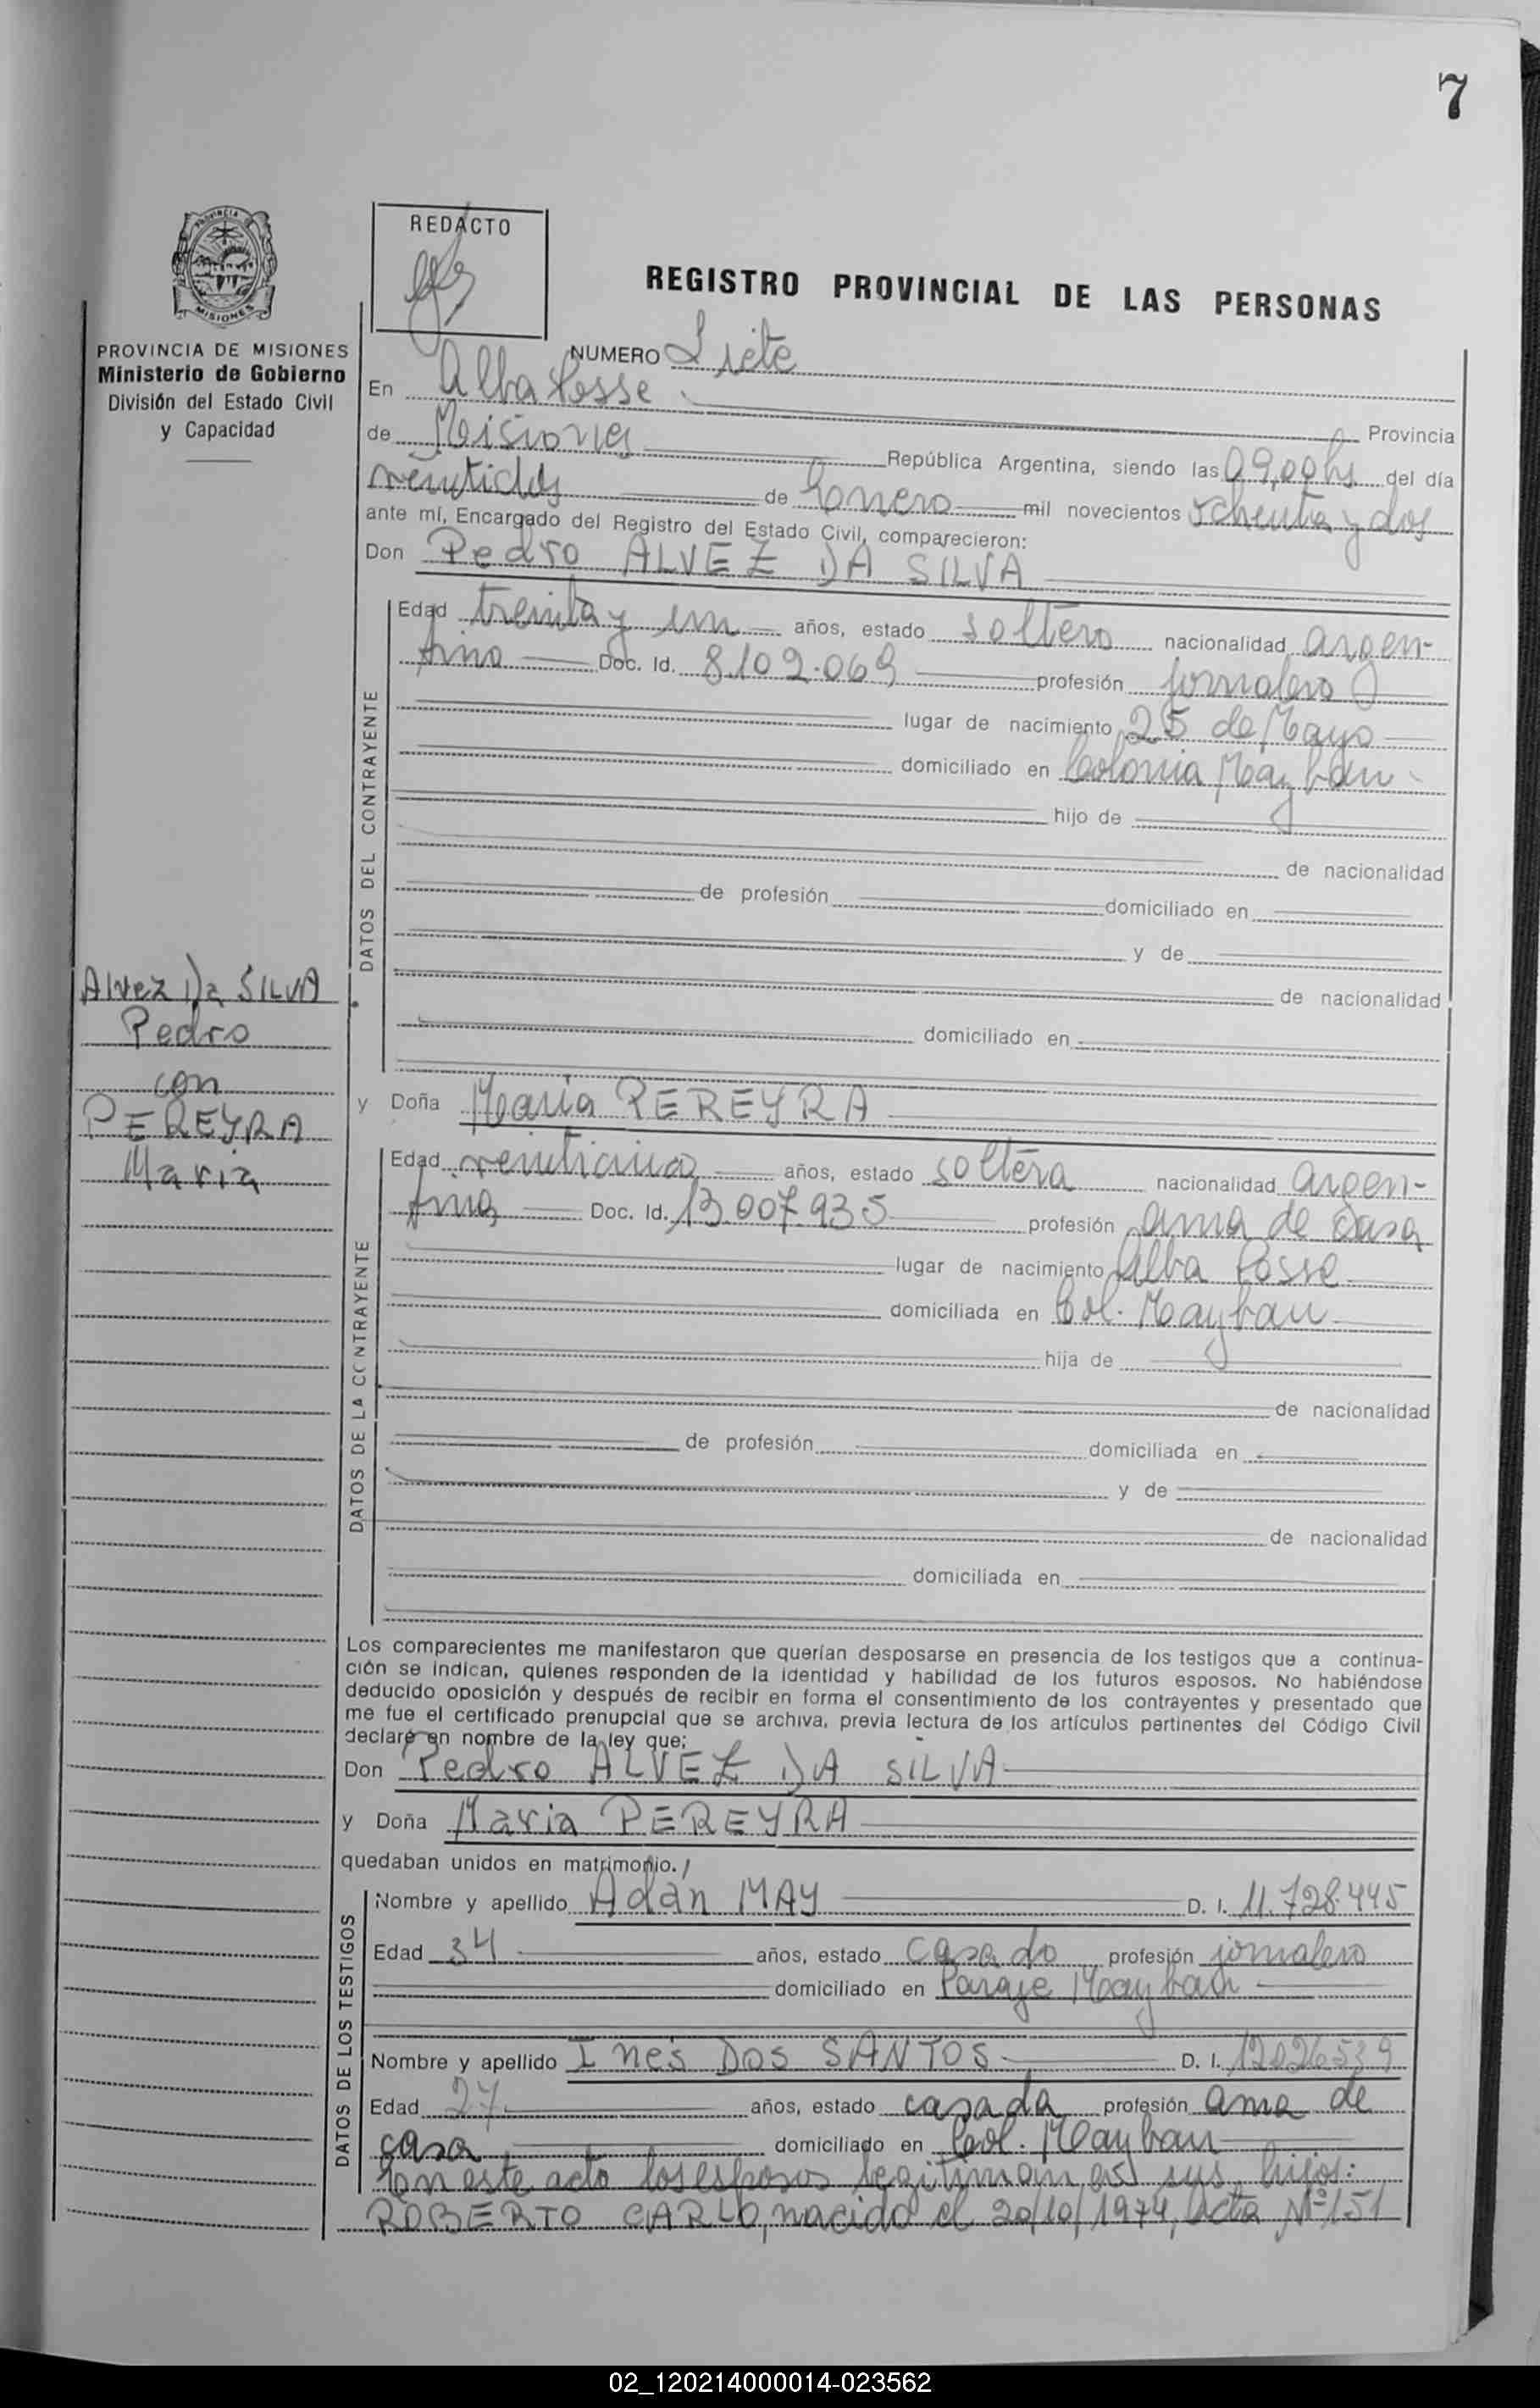 7
PROVINCIA
MISIONES
PROVINCIA DE MISIONES
Ministerio de Gobierno
División del Estado Civil
y Capacidad
REDACTO
REGISTRO PROVINCIAL DE LAS PERSONAS
NUMERO Siete
En Alba Posse
Provincia
de Misiones República Argentina, siendo las 09,00 hs del día
veintidos de Enero mil novecientos ochenta y dos
ante mí, Encargado del Registro del Estado Civil, comparecieron:
Don Pedro ALVEZ DA SILVA
DATOS DEL CONTRAYENTE
Edad treinta y un años, estado soltero nacionalidad argen-
tino Doc. Id. 8.109.069 profesión jornalero
lugar de nacimiento 25 de Mayo
domiciliado en Colonia Mayban
hijo de
de nacionalidad
de profesión domiciliado en
y de
de nacionalidad
domiciliado en
Alvez Da SILVA
Pedro
con
PEREYRA
Maria
y Doña Maria PEREYRA
DATOS DE LA CONTRAYENTE
Edad veinticinco años, estado soltera nacionalidad argen-
tina Doc. Id. 13.007.935 profesión ama de casa
lugar de nacimiento Alba Posse
domiciliada en Col. Mayban
hija de
de nacionalidad
de profesión domiciliada en
y de
de nacionalidad
domiciliada en
Los comparecientes me manifestaron que querían desposarse en presencia de los testigos que a continua-
ción se indican, quienes responden de la identidad y habilidad de los futuros esposos. No habiéndose
deducido oposición y después de recibir en forma el consentimiento de los contrayentes y presentado que
me fue el certificado prenupcial que se archiva, previa lectura de los artículos pertinentes del Código Civil
declaré en nombre de la ley que:
Don Pedro ALVEZ DA SILVA
y Doña Maria PEREYRA
quedaban unidos en matrimonio.
DATOS DE LOS TESTIGOS
Nombre y apellido Adán MAY D. I. 11.728.445
Edad 34 años, estado casado profesión jornalero
domiciliado en Paraje Mayban
Nombre y apellido Inés DOS SANTOS D. I. 12026539
Edad 27 años, estado casada profesión ama de
casa domiciliado en Col. Mayban
En este acto los esposos legitiman a sus hijos:
ROBERTO CARLO, nacido el 20/10/1974, Acta Nº 151
02_120214000014-023562